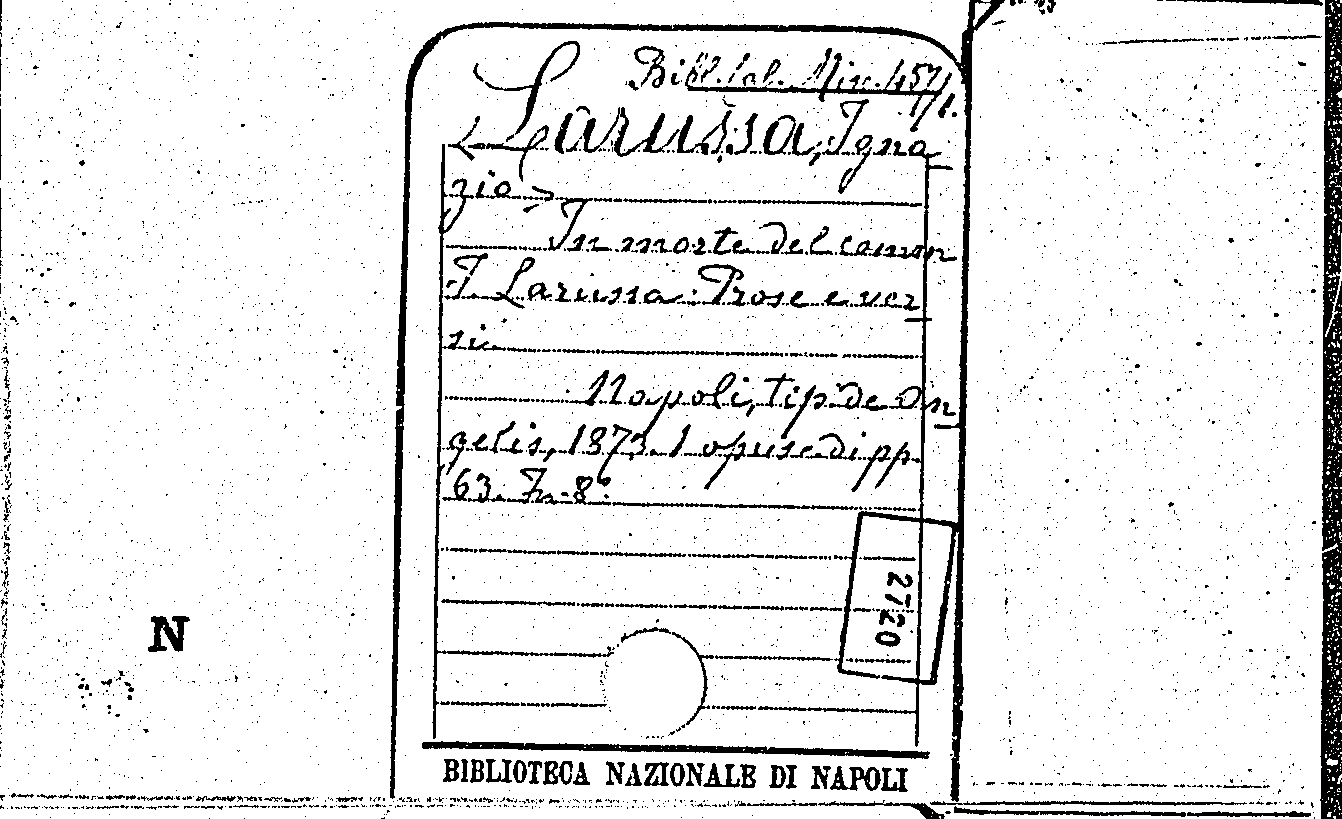 Bibl. Cal. Min. 457/
1/1.
< Larussa, Igna
zio >
In morte del comm
I. Larussa: Prose e ver
si.
Napoli, tip. de An
gelis, 1873. 1 opusc. di pp.
63. In-8º.
2720
N
BIBLIOTECA NAZIONALE DI NAPOLI